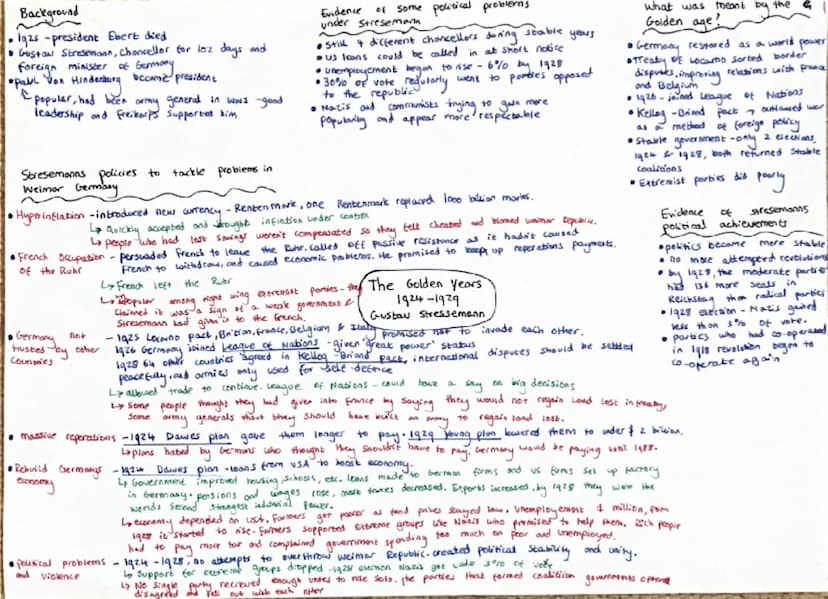 Background
• 1925 - president Ebert died
• Gustav Stresemann, Chancellor for 102 days and
foreign minister of Germany
• Paul Von Hindenburg became president
↳ popular, had been army general in wars - good
leadership and Freikorps supported him
Evidence of some political problems
under Stresemann
• Still 4 different chancellors during stable years
• US loans could be called in at short notice
• Unemployement began to rise - 6% by 1928
• 30% of vote regularly went to parties opposed
to the republic
• Nazis and communists trying to gain more
popularity and appear more respectable
What was meant by the
Golden age?
• Germany restored as a world power
• Treaty of Locarno sorted border
disputes, improving relations with France
and Belgium
• 1926 - joined League of Nations
• Kellog - Briand pact - outlawed war
as a method of foreign policy
• Stable government - only 2 elections,
1924 & 1928, both returned stable
coalitions
• Extremist parties did poorly
Stresemanns policies to tackle problems in
Weimar Germany
• Hyperinflation - introduced new currency - Rentenmark, one Rentenmark replaced 1000 billion marks.
↳ Quickly accepted and brought inflation under control
↳ people who had lost savings weren't compensated so they felt cheated and blamed Weimar Republic.
• French Occupation - persuaded French to leave the Ruhr. Called off passive resistance as it hadn't caused
of the Ruhr French to withdraw, and caused economic problems. He promised to keep up reperations payments.
↳ French left the Ruhr
↳ unpopular among right wing extremist parties - they
claimed it was a sign of a weak government &
Stresemann had given in to the French.
The Golden Years
1924 - 1929
Gustav Stressemann
Evidence of stresemanns
political achievements
• politics became more stable
• no more attempted revolutions
• by 1928, the moderate parties
had 136 more seats in
Reichstag than radical parties
• 1928 election - Nazis gained
less than 3% of vote.
• parties who had co-operated
in 1918 revolution began to
co-operate again
• Germany not - 1925 Locarno pact, Britain, France, Belgium & Italy promised not to invade each other.
trusted by other 1926 Germany joined League of Nations - given 'great power' status
Countries 1928 64 other countries agreed in Kellog - Briand pact, international disputes should be settled
peacefully, and armies only used for self defence
↳ allowed trade to continue. League of Nations - could have a say on big decisions
↳ Some people thought they had given into France by saying they would not regain land lost in treaty,
Some army generals thought they should have built an army to regain land lost.
• massive reperations - 1924 Dawes plan gave them longer to pay. 1929 Young plan lowered them to under £2 billion.
↳ plans hated by Germans who thought they shouldn't have to pay. Germany would be paying until 1988.
• Rebuild Germanys - 1924 Dawes plan - loans from USA to boost economy.
economy ↳ Government improved housing, schools, etc. loans made to German firms and US firms set up factory
in Germany. pensions and wages rose, most taxes decreased. Exports increased. by 1928 they were the
worlds second strongest industrial power.
↳ economy depended on USA. Farmers got poorer as food prices stayed low. Unemployment 1 million, from
1928 it started to rise. Farmers supported extreme groups like Nazis who promised to help them. Rich people
had to pay more tax and complained government spending too much on poor and unemployed.
• Political problems - 1924 - 1928, no attempts to overthrow Weimar Republic. created political stability and unity.
and violence ↳ Support for extreme groups dropped - 1928 election Nazis got under 3% of vote
↳ No single party recieved enough votes to rule solo. The parties that formed coalition governments often
disagreed and fell out with each other